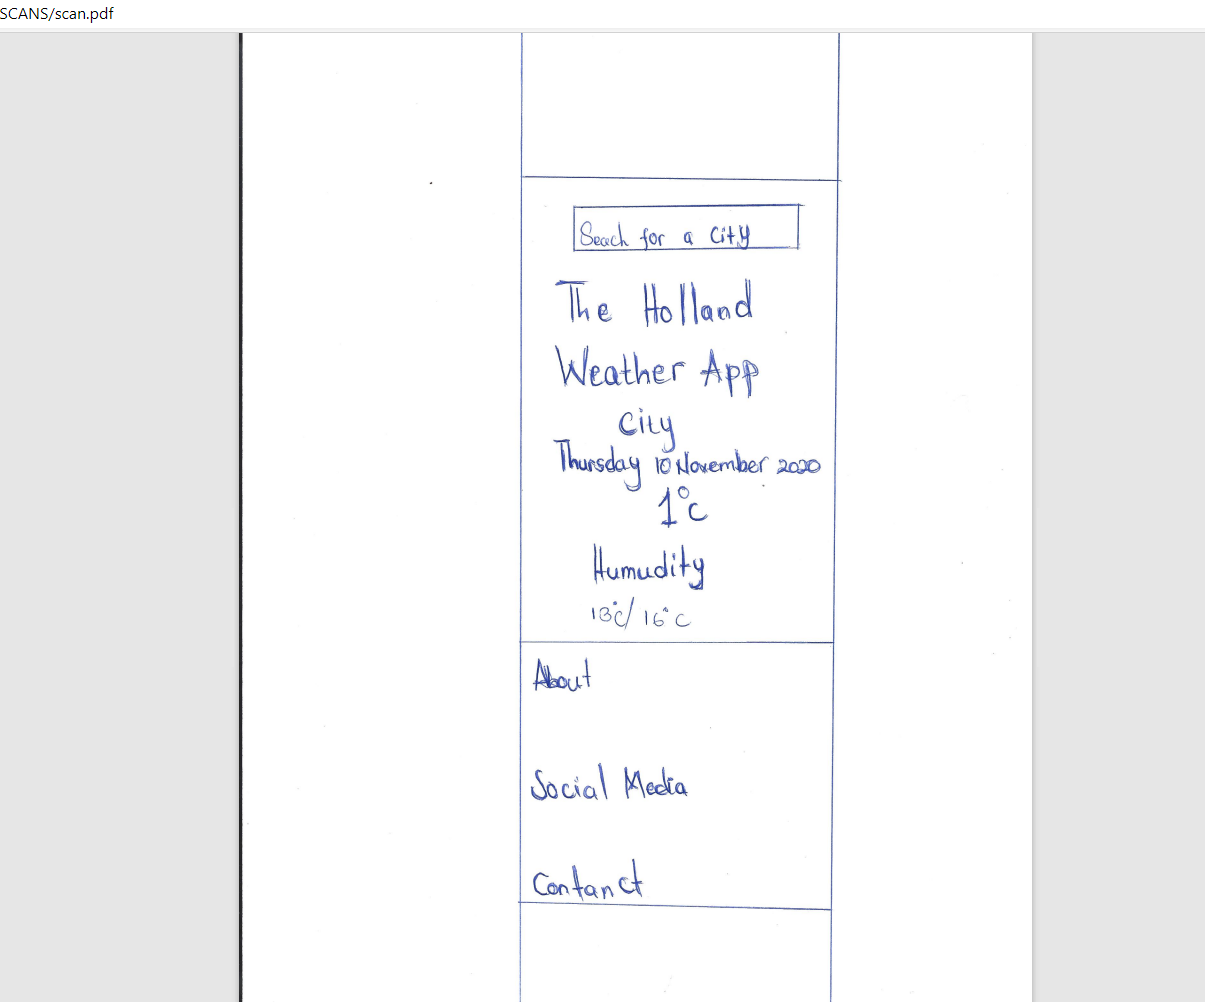 SCANS/scan.pdf
Seach for a City
The Holland
Weather App
City
Thursday 10 November 2020
1°C
Humudity
13°C/ 16°C
About
Social Media
Contanct